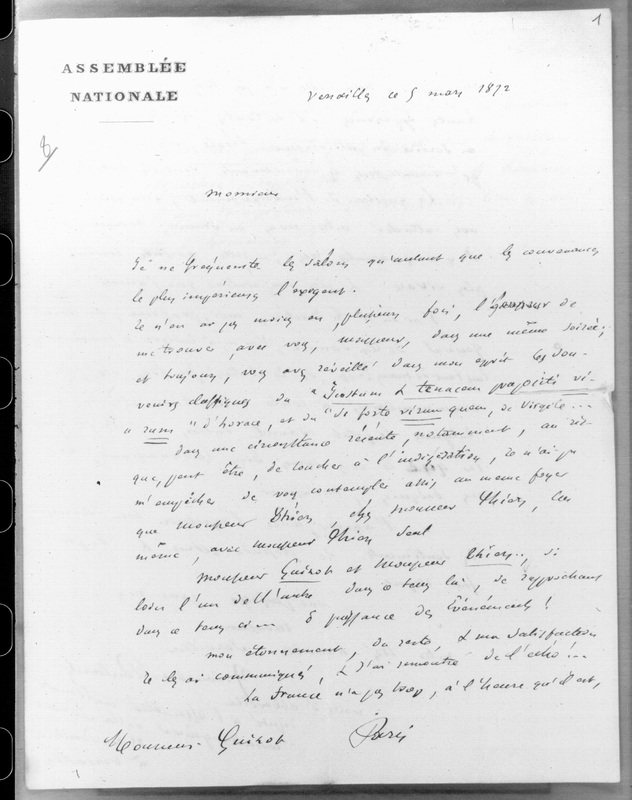 1
ASSEMBLÉE
NATIONALE
Versailles ce 5 mars 1872
8
Monsieur
Je ne fréquente les salons qu'autant que les convenances
les plus impérieuses l'exigent.
Je n'en ai pas moins eu, plusieurs fois, l'honneur de
me trouver, avec vous, monsieur, dans une même soirée;
et toujours, vous avez réveillé dans mon esprit les sou-
venirs classiques du "Justum & tenacem propositi vi-
"rum" d'horace, et du "si forte virum quem, de Virgile...
dans une circonstance récente, notamment, au ris-
que, peut être, de toucher à l'indiscrétion, je n'ai pu
m'empêcher de vous contempler assis au même foyer
que monsieur Thiers, chez monsieur Thiers, lui
même, avec monsieur Thiers seul
Monsieur Guizot et Monsieur Thiers.., si
loin l'un de l'autre dans ce temps là, se rapprochant
dans ce temps ci... ô puissance des Événements!
mon étonnement, du reste, & ma satisfaction
je les ai communiqués, & j'ai rencontré de l'écho!...
La France n'a pas trop, à l'heure qu'il est,
Monsieur Guizot
Paris